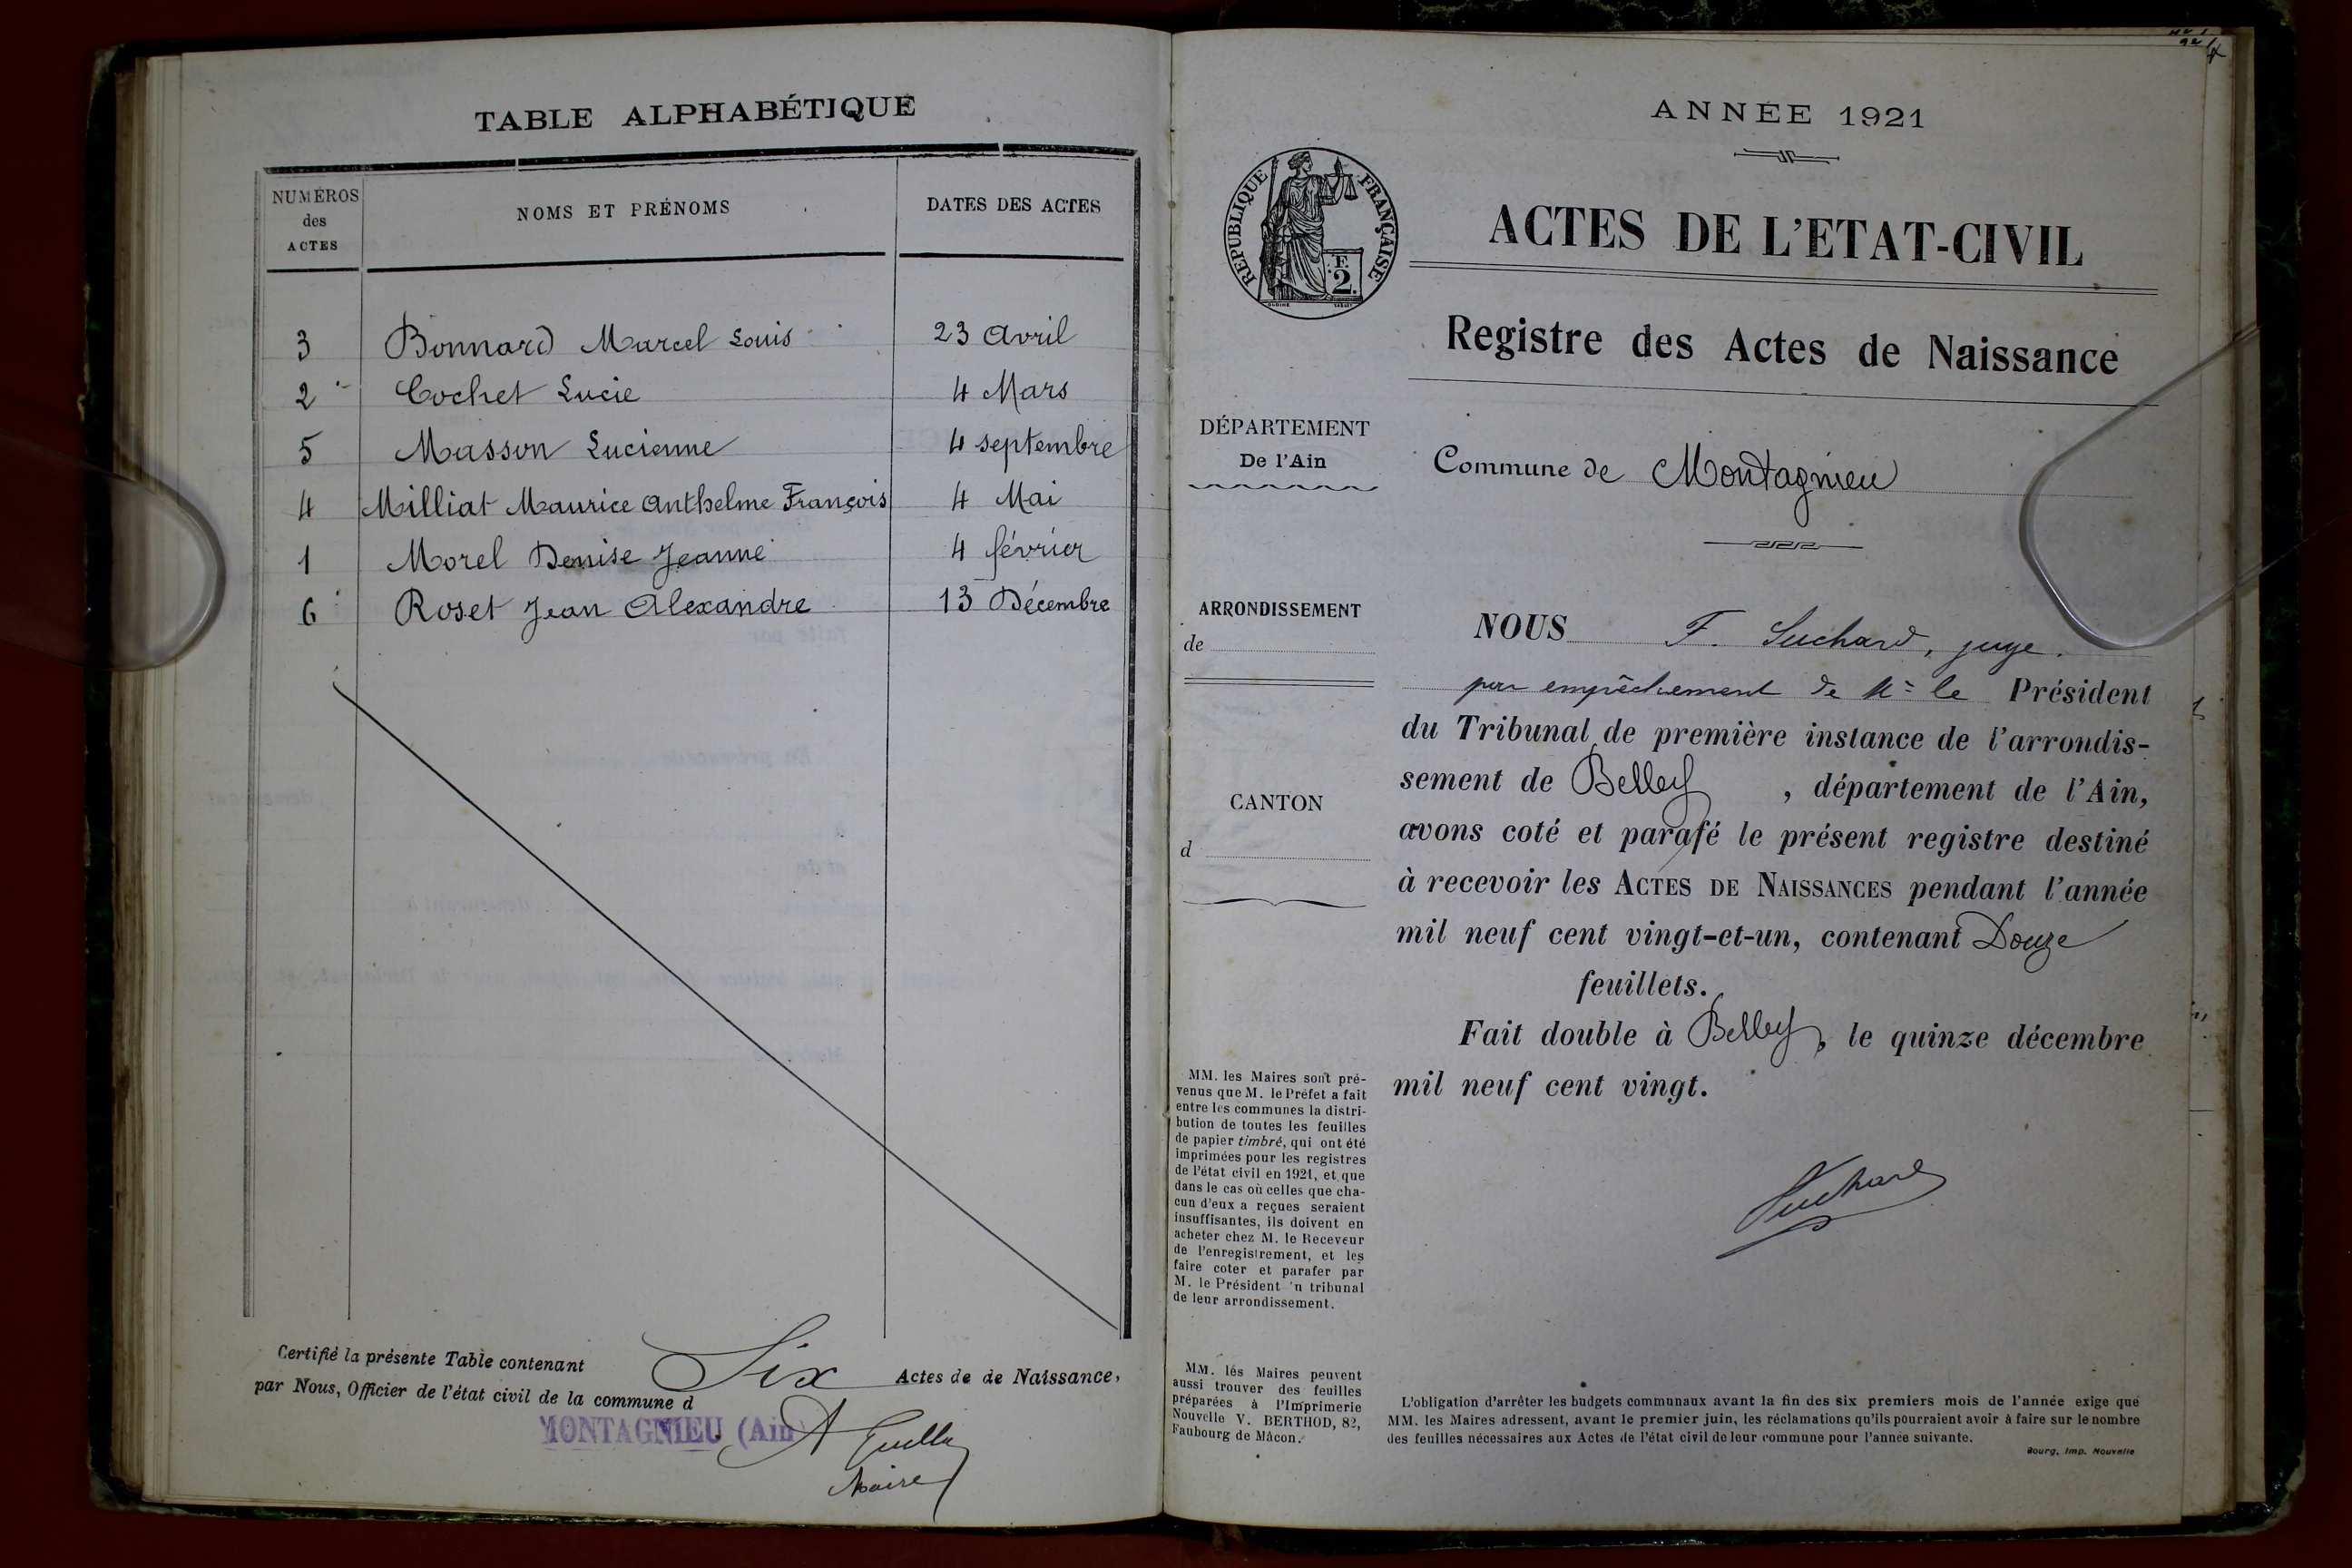 TABLE ALPHABÉTIQUE
NUMÉROS
des
ACTES
NOMS ET PRÉNOMS
DATES DES ACTES
3 Bonnard Marcel Louis 23 Avril
2 Cochet Lucie 4 Mars
5 Masson Lucienne 4 septembre
4 Milliat Maurice Anthelme François 4 Mai
1 Morel Denise Jeanne 4 février
6 Roset Jean Alexandre 13 Décembre
Certifié la présente Table contenant Six Actes de de Naissance,
par Nous, Officier de l'état civil de la commune d
MONTAGNIEU (Ain)
Maire
ANNÉE 1921
RÉPUBLIQUE FRANÇAISE
F.
2.
ACTES DE L'ETAT-CIVIL
Registre des Actes de Naissance
DÉPARTEMENT
De l'Ain
Commune de Montagnieu
ARRONDISSEMENT
de
CANTON
d
NOUS F. Suchard, juge.
par empêchement de Mr le Président
du Tribunal de première instance de l'arrondis-
sement de Belley, département de l'Ain,
avons coté et parafé le présent registre destiné
à recevoir les ACTES DE NAISSANCES pendant l'année
mil neuf cent vingt-et-un, contenant Douze
feuillets.
Fait double à Belley, le quinze décembre
mil neuf cent vingt.
Suchard
MM. les Maires sont pré-
venus que M. le Préfet a fait
entre les communes la distri-
bution de toutes les feuilles
de papier timbré, qui ont été
imprimées pour les registres
de l'état civil en 1921, et que
dans le cas où celles que cha-
cun d'eux a reçues seraient
insuffisantes, ils doivent en
acheter chez M. le Receveur
de l'enregistrement, et les
faire coter et parafer par
M. le Président 'u tribunal
de leur arrondissement.
MM. les Maires peuvent
aussi trouver des feuilles
préparées à l'Imprimerie
Nouvelle V. BERTHOD, 82,
Faubourg de Mâcon.
L'obligation d'arrêter les budgets communaux avant la fin des six premiers mois de l'année exige que
MM. les Maires adressent, avant le premier juin, les réclamations qu'ils pourraient avoir à faire sur le nombre
des feuilles nécessaires aux Actes de l'état civil de leur commune pour l'année suivante.
Bourg, Imp. Nouvelle